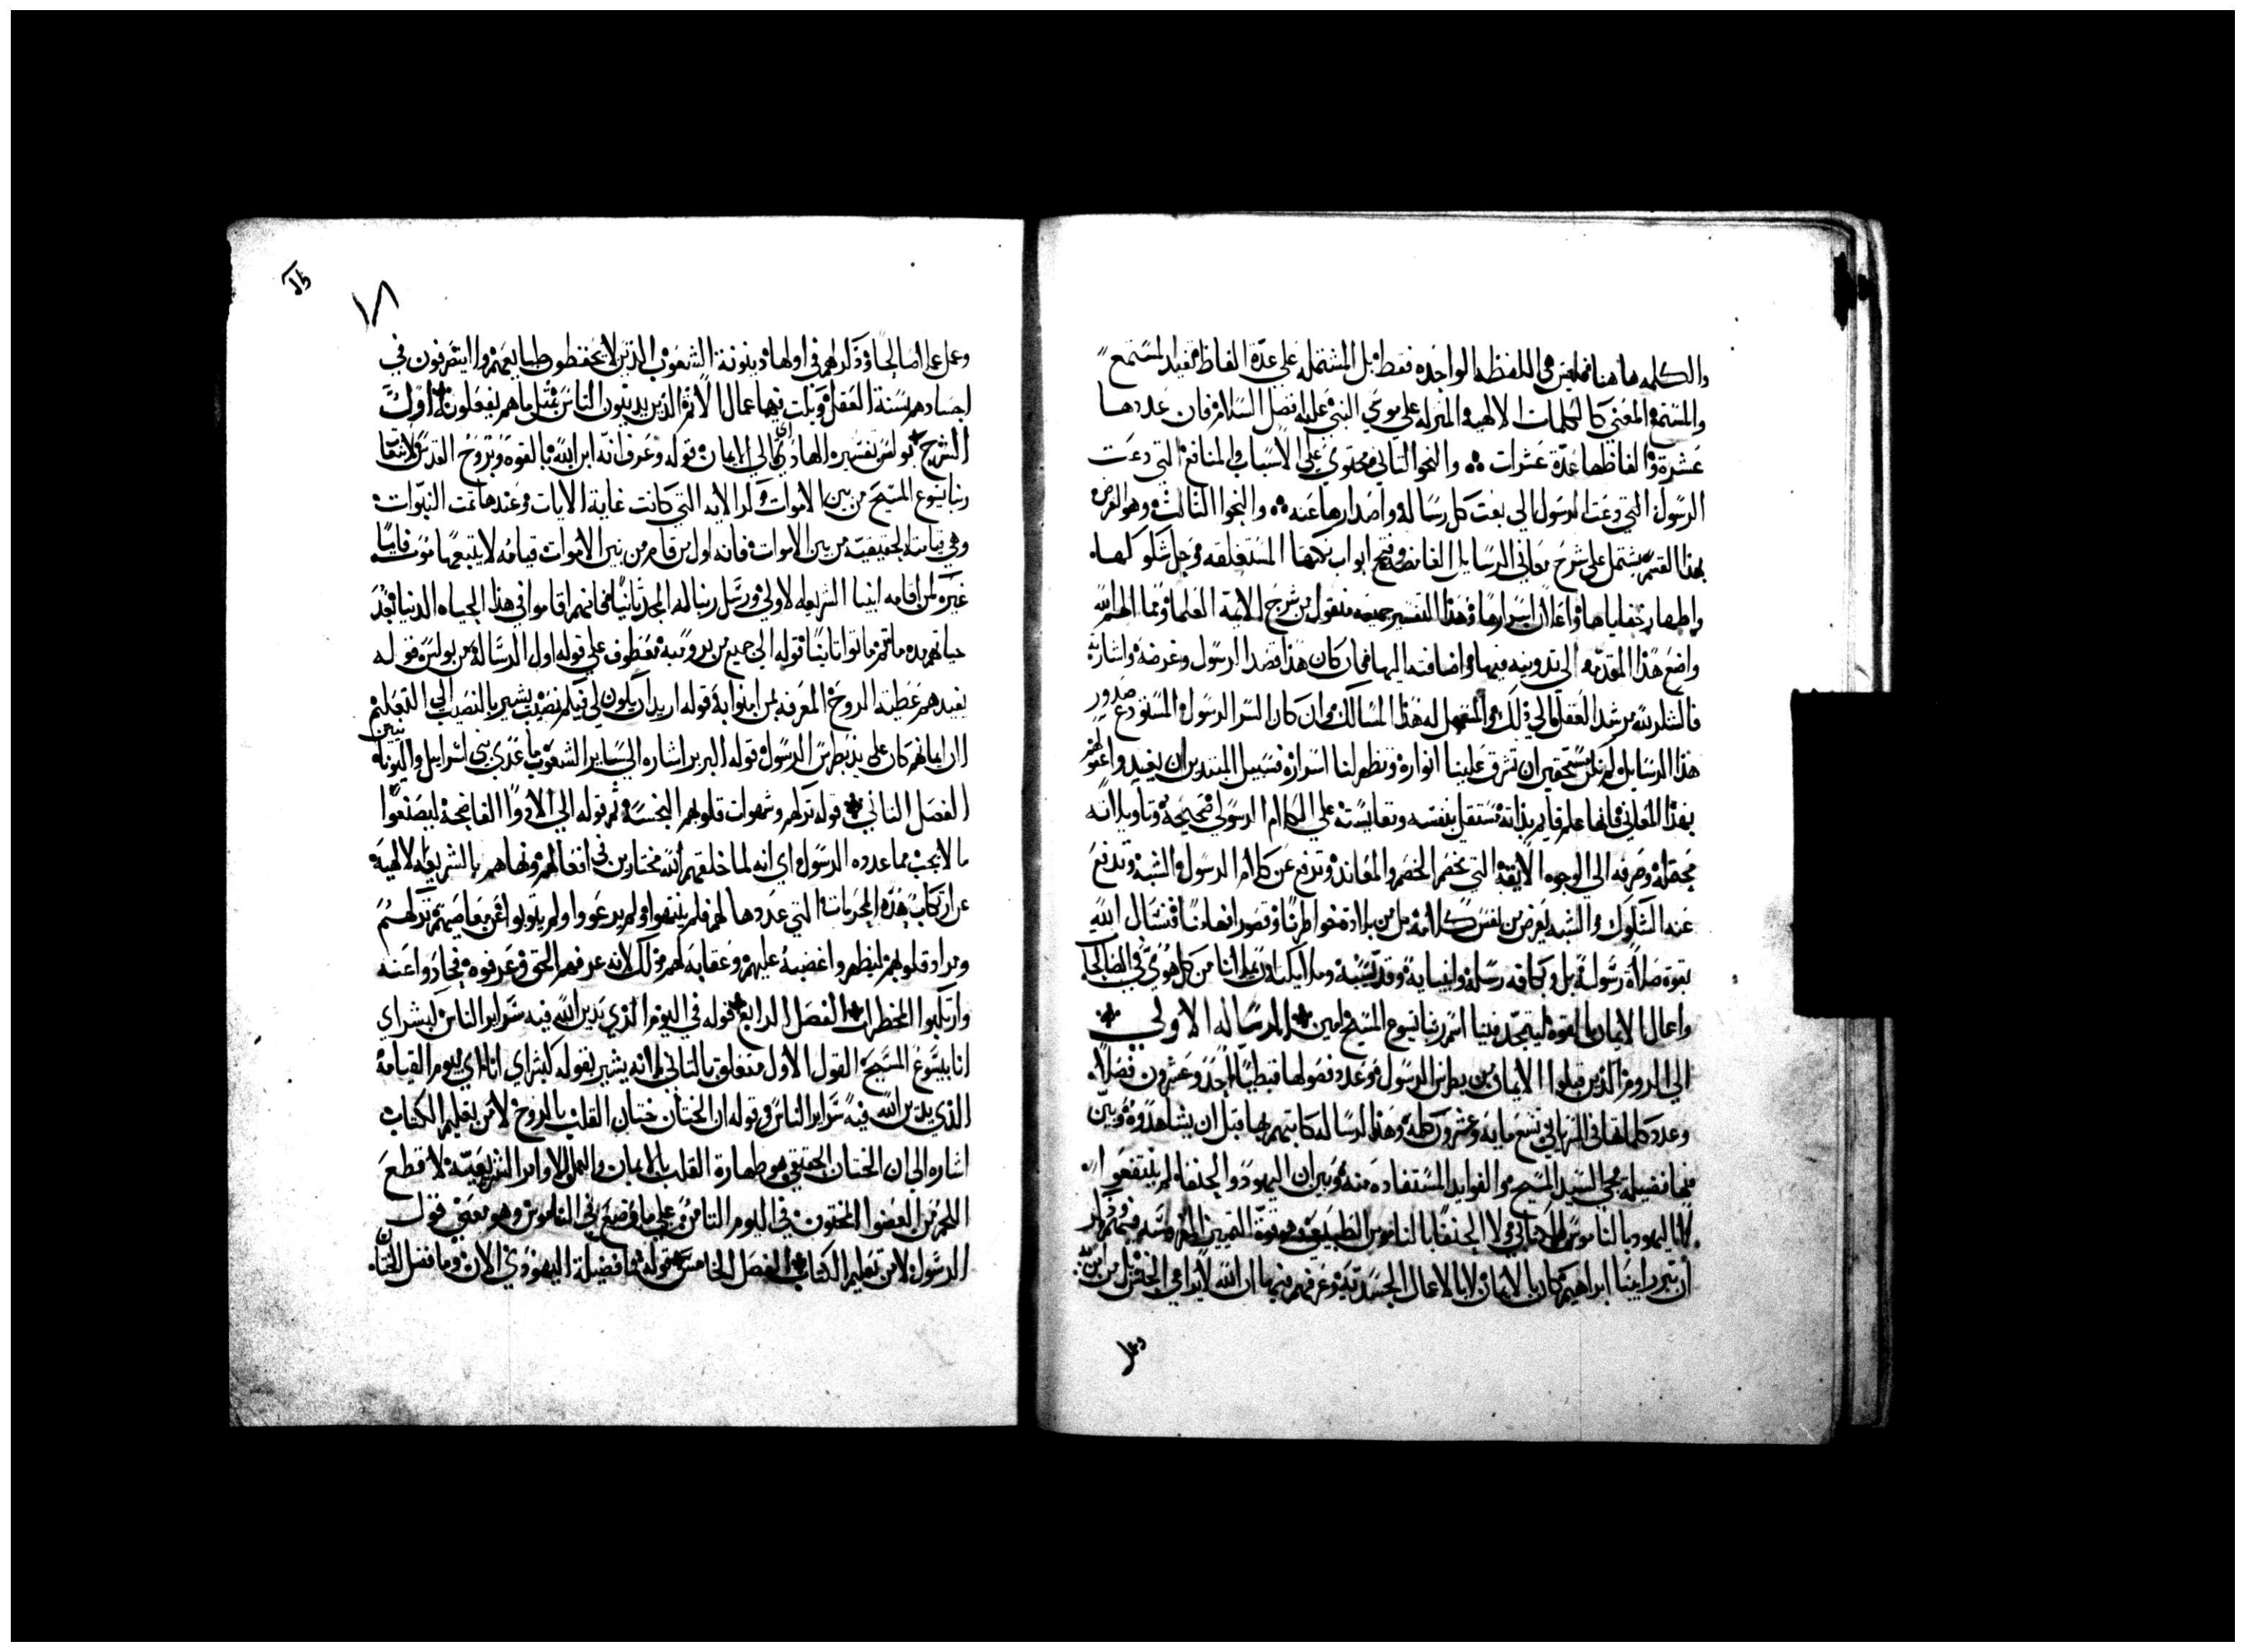 والكلمه هاهنا فليس هي اللفظه الواحده فقط بل المشتمله على عدة الفاظ تفيد المستمع
والمستمع المعني كالكلمات الالهيه المنزله على موسي النبي عليه افضل السلام فان عددها
عشرة والفاظها عدة عشرات والنحو الثاني محتوي على الاسباب والمنافع التي دعت
الرسول التي دعت الرسول الي بعث كل رسالة واصدارها عنه والنحو الثالث وهو الغرض
بهذا القسم يشتمل على شرح معاني الرسايل الغامضه وفتح ابواب نكتها المستغلقه وحل شكوكها
واظهار خفاياها واعلان اسرارها وهذا التفسير جميعه منقول من شرح الايمة العلما ومما الهم الله
واضع هذا المقدمه الي تدوينه فيها واضافته اليها فان كان هذا قصد الرسول وغرضه واشارته
فالشكر لله مرشد العقل الي ذلك والمسهل له هذا المسالك وان كان السر الرسول المستودع صدور
هذا الرسايل لم نكن مستحقين ان تشرق علينا انواره وتظهر لنا اسراره فسبيل المبتدين ان يفيدوا غيرهم
بهذا المعاني فانها علم قايم بذاته مستقل بنفسه ومقايسته على الكلام الرسولي صحيحه وتاويلاته
محتمله وصرفه الي الوجوه الايقة التي تخصم الخصم والمعاند وتدفع عن كلام الرسول الشبه وتدفع
عنه الشكوك والشبه يعرض من نفس كلامه بل من بلادة خواطرنا وقصور افهامنا فنسال الله
بقوة صلاة رسوله بل وبكافه رسله وانبيايه وقديسيه وملايكته ان يملانا من كل هوي في الصالحا
واعمال الايمان بالقوه ليتمجد فينا اسم ربنا يسوع المسيح امين الرساله الاولي
الي الرومر الذين قبلوا الايمان من بطرس الرسول وعدد فصولها قبطيا احد وعشرون فصلا
وعدد كلماتها في السرياني تسع مايه وعشرون كلمة وهذا الرساله كاتبهم بها قبل ان يشاهدوه وبين
فيها فضيلة مجي السيد المسيح والفوايد المستفاده منه وبين ان اليهود والحنفا لم ينتفعوا
لا اليهود بالناموس الكتابي ولا الحنفا بالناموس الطبيعي وهو قوة التمييز المغروسه فيهم وذكر
ان تبرر ابينا ابراهيم كان بالايمان لا بالاعمال الجسديه وعرفهم فيها ان الله لا يوافي الجنس بل من امن
وعمل
١٨
وعمل عملا صالحا وذكر لهم في اولها دينونة الشعوب الذين لا يحفظون طبايعهم ولا يتصرفون في
اجسادهم بسنة العقل وبكت فيها اعمال الاثم الذين يدينون الناس بمثل ما هم يفعلون اول
الشرح بولس تفسيره الهادي اي الي الايمان قوله وعرف انه ابن الله بالقوة وبروح القدس لانبعاث
ربنا يسوع المسيح من بين الاموات وذكر الايه التي كانت غاية الايات وعندها تمت النبوات
وهي قيامته الحقيقيه من بين الاموات فانه اول من قام من بين الاموات قيامه لا يتبعها موت فاما
غيره لمن اقامه انبيا الشريعه الاولي ورسل ربنا له المجد ثانيا فانهم اقاموا في هذا الحياه الدنيا بعد
حياتهم مده ما ثم ماتوا ثانيا قوله الي جميع من برومية معطوف على قوله اول الرسالة من بولس قوله
يفيدهم عطية الروح المعرفه لمن امنوا به قوله اريد ان يكون لي فيكم نصيب يشير بالنصيب الي التعليم
لان ايمانهم كان على يد بطرس الرسول قوله البربر اشاره الي ساير الشعوب ما عدي بني اسراييل واليونانيين
الفصل الثاني قوله تركهم وشهوات قلوبهم النجسه ثم قوله الي الادوا الفاضحة ليصنعوا
ما لا يجب مما عدده الرسول اي انه لما خلقهم الله مختارين في افعالهم ونهاهم بالشريعه الالهية
عن ارتكاب هذه المحرمات التي عددها لهم فلم ينتهوا ولم يرعووا ولم يتوبوا عن معاصيهم تركهم
ومراد قلوبهم ليظهروا غضبه عليهم وعقابه لهم وذلك لانه عرفهم الحق وعرفوه فحادوا عنه
وارتكبوا المحظرات الفصل الرابع قوله في اليوم الذي يدين الله فيه سراير الناس كبشراي
انا بيسوع المسيح القول الاول متعلق بالثاني لانه يشير بقوله كبشراي انا اي ليوم القيامه
الذي يدين الله فيه سراير الناس وقوله ان الختان ختان القلب بالروح لا من تعليم الكتاب
اشاره الي ان الختان الحقيقي هو طهارة القلب بالايمان والعمل بالاوامر الشريعيه لا قطع
اللحم من العضوا المختون في اليوم الثامن على ما وضع في الناموس وهو معني قول
الرسول لا من تعليم الكتاب الفصل الخامس قوله فما فضيلة اليهودي الان وما فضل الختان